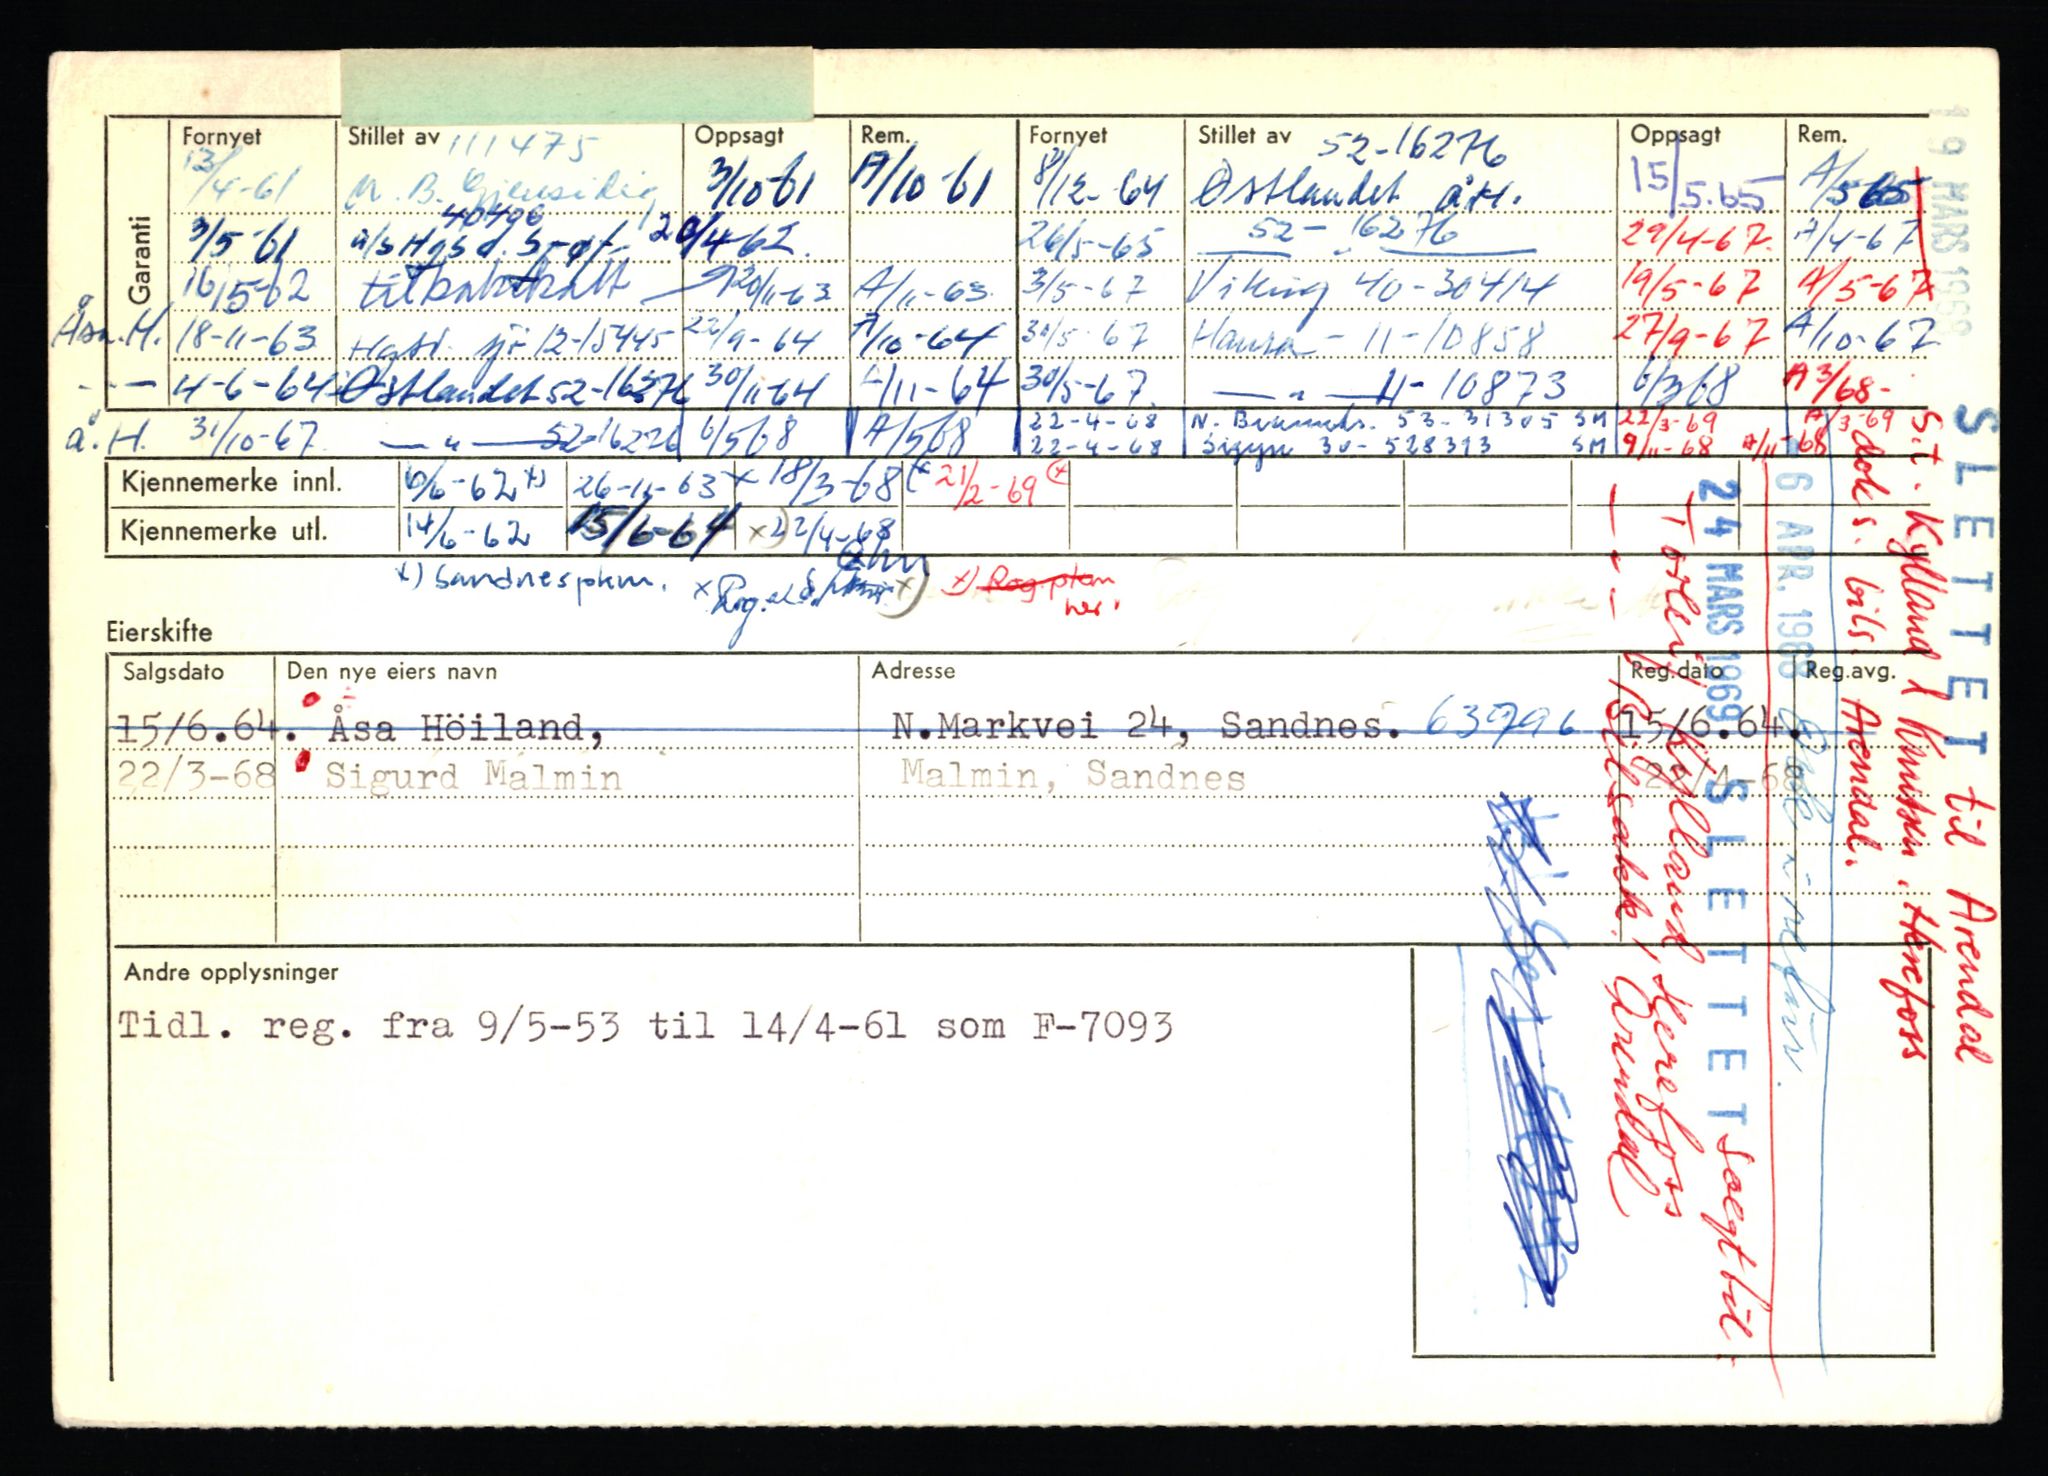 Garanti
Fornyet Stillet av Oppsagt Rem. Fornyet Stillet av Oppsagt Rem.
111475 52-16276
13/4-61 N. B. Gjensidig 3/10-61 A/10-61 8/12-64 Østlandet å.H. 15/5.65 A/5 65
40496
3/5-61 20/4-62 26/5-65 52-16276 29/4-67. A/4-67
16/5-62 tilbakekalt 20/11-63 A/11-63. 3/5-67 Viking 40-30414 19/5-67 A/5-67
Åsa.H. 18-11-63 12-15445 22/9-64 A/10-64 30/5-67 Hansa - 11-10858 27/9-67 A/10-67
-"- 4-6-64 Østlandet 52-16276 30/11-64 A/11-64 30/5-67. -"- 11-10873 6/3 68 A 3/68-
å.H. 31/10-67. -"- 52-16276 6/5 68 A/5 68 22-4-68 53-31305 SM 22/3-69 A/3-69
22-4-68 Sigyn 30-528313 SM 9/11-68 A/11-68
Kjennemerke innl. 6/6-62 x) 26-11-63 x 18/3-68 21/2-69 x
Kjennemerke utl. 14/6-62 15/6-64 x) 22/4-68
x) Sandnes pkm. x Reg. x) Reg.pkm her.
Eierskifte
Salgsdato Den nye eiers navn Adresse Reg.dato Reg.avg.
15/6.64. Åsa Höiland, N.Markvei 24, Sandnes. 63796 15/6.64.
22/3-68 Sigurd Malmin Malmin, Sandnes 22/4-68
Andre opplysninger
Tidl. reg. fra 9/5-53 til 14/4-61 som F-7093
19 MARS 1969
SLETTET til Arendal
S.t. Kylland / Knutsen. Herefoss
dok s. bils. Arendal.
6 APR. 1968
24 MARS 1969 SLETTET Solgt til:
Torleif Kylland, Herefoss
--- Bilsakk. Arendal